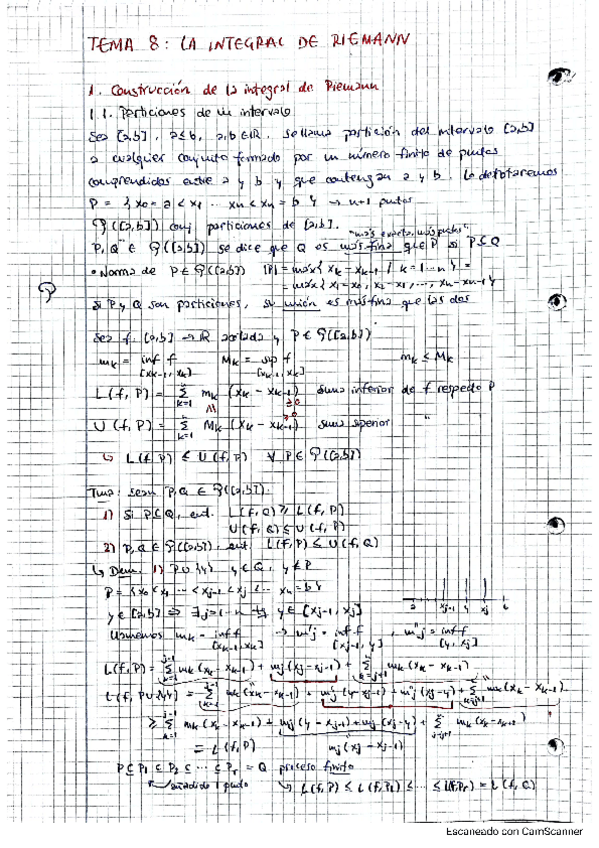 TEMA 8: LA INTEGRAL DE RIEMANN
1. Construcción de la integral de Riemann
1.1. Particiones de un intervalo
Sea [a,b], a≤b, a,b∈ℝ. Se llama partición del intervalo [a,b]
a cualquier conjunto formado por un número finito de puntos
comprendidos entre a y b y que contengan a y b. Lo denotaremos
P = {x₀ = a < x₁ ... xₙ < xₙ = b} → n+1 puntos
𝒫([a,b]) conj particiones de [a,b].
"más exacta, más puntos"
P, Q ∈ 𝒫([a,b]) se dice que Q es más fina que P si P⊆Q
• Norma de P∈𝒫([a,b]) |P| = máx{xₖ - xₖ₋₁ / k=1...n} =
= máx{x₁-x₀, x₂-x₁, ..., xₙ-xₙ₋₁}
si P y Q son particiones, su unión es más fina que las dos
Sea f: [a,b] → ℝ acotada y P∈𝒫([a,b])
mₖ = inf f Mₖ = sup f mₖ ≤ Mₖ
[xₖ₋₁, xₖ] [xₖ₋₁, xₖ]
L(f, P) = Σ mₖ (xₖ - xₖ₋₁) suma inferior de f respecto P
U(f, P) = Σ Mₖ (xₖ - xₖ₋₁) suma superior "
↳ L(f, P) ≤ U(f, P) ∀ P∈𝒫([a,b])
Tma: sean P,Q ∈ 𝒫([a,b]).
1) Si P⊆Q, ent. L(f,Q) ≥ L(f,P)
U(f,Q) ≤ U(f,P)
2) P,Q ∈ 𝒫([a,b]), ent. L(f,P) ≤ U(f,Q)
↳ Dem. 1) P∪{y} y∈Q, y∉P
P = {x₀ < x₁ ... xⱼ₋₁ < xⱼ < ... xₙ = b}
a xⱼ₋₁ y xⱼ b
y∈[a,b] ⇒ ∃ j=1...n tq y∈[xⱼ₋₁, xⱼ]
mₖ = inf f → m'ⱼ = inf f, m''ⱼ = inf f
[xₖ₋₁, xₖ] [xⱼ₋₁, y] [y, xⱼ]
L(f,P) = Σ mₖ(xₖ - xₖ₋₁) + mⱼ(xⱼ - xⱼ₋₁) + Σ mₖ(xₖ - xₖ₋₁)
L(f, P∪{y}) = Σ mₖ(xₖ - xₖ₋₁) + m'ⱼ(y - xⱼ₋₁) + m''ⱼ(xⱼ - y) + Σ mₖ(xₖ - xₖ₋₁)
≥ Σ mₖ(xₖ - xₖ₋₁) + mⱼ(y - xⱼ₋₁) + mⱼ(xⱼ - y) + Σ mₖ(xₖ - xₖ₋₁)
= L(f,P) mⱼ(xⱼ - xⱼ₋₁)
P⊆P₁⊆P₂⊆ ... ⊆Pᵣ = Q proceso finito
añadido 1 punto ↳ L(f,P) ≤ L(f,P₁) ≤ ... ≤ L(f,Pᵣ) = L(f,Q)
Escaneado con CamScanner